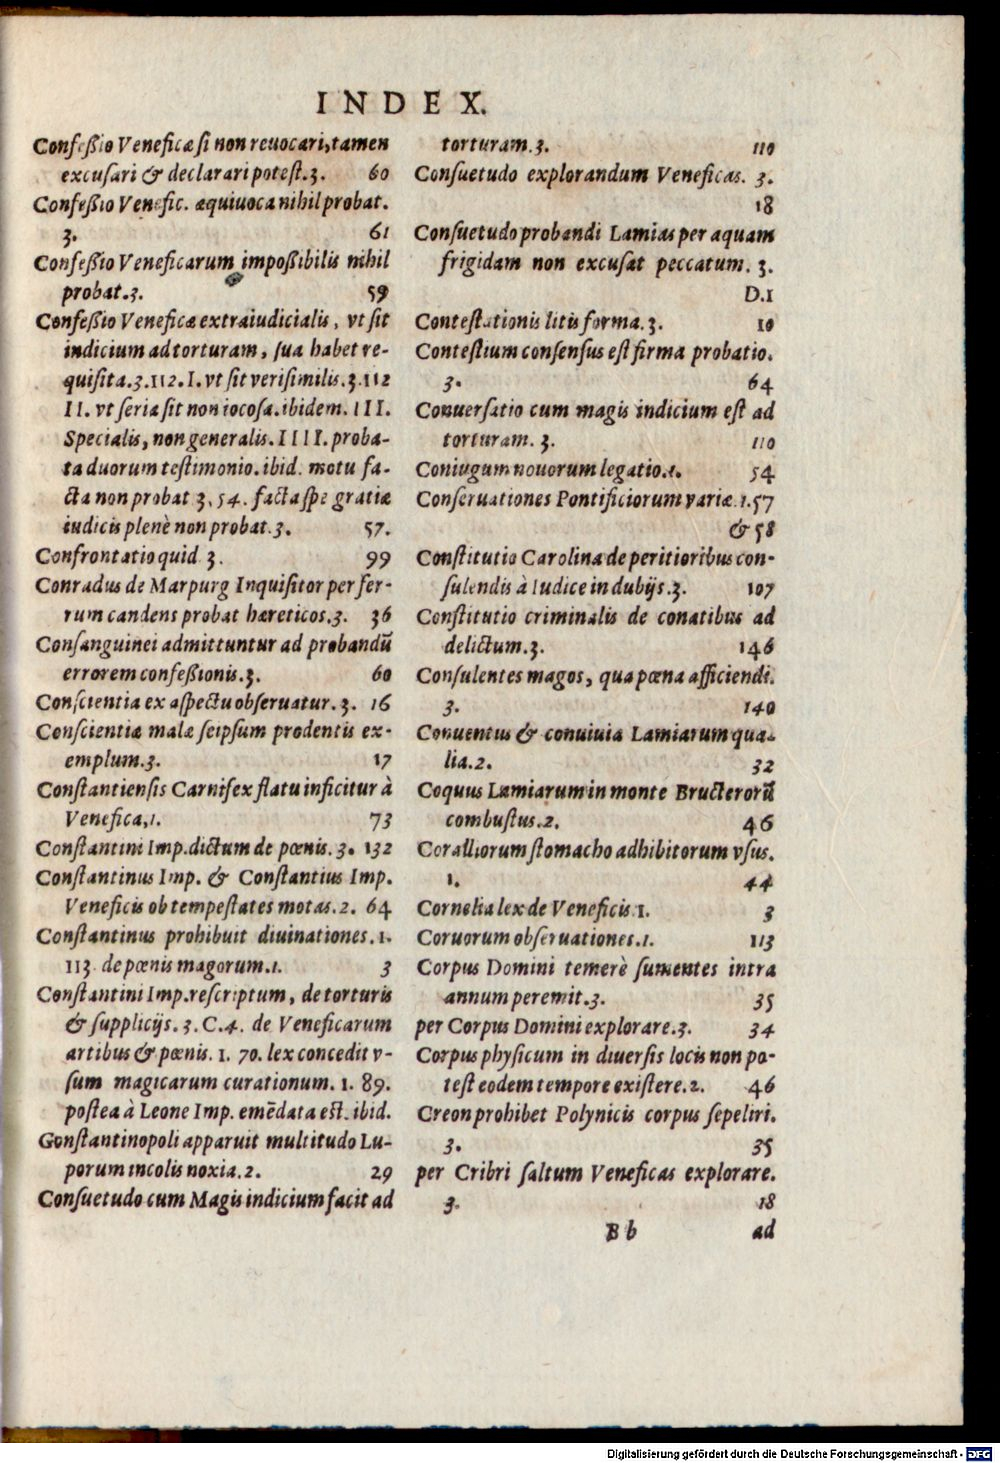 INDEX.
Confeßio Veneficæ si non reuocari, tamen
excusari & declarari potest.3. 60
Confeßio Venefic. æquiuoca nihil probat.
3. 61
Confeßio Veneficarum impoßibilis nihil
probat.3. 59
Confeßio Veneficæ extraiudicialis, vt sit
indicium ad torturam, sua habet re-
quisita.3.112.I. vt sit verisimilis.3.112
II. vt seria sit non iocosa. ibidem. III.
Specialis, non generalis. IIII. proba-
ta duorum testimonio. ibid. motu fa-
cta non probat 3.54. facta spe gratiæ
iudicis plenè non probat.3. 57.
Confrontatio quid 3. 99
Conradus de Marpurg Inquisitor per fer-
rum candens probat hæreticos.3. 36
Consanguinei admittuntur ad probandũ
errorem confeßionis.3. 60
Conscientia ex aspectu obseruatur.3. 16
Conscientiæ malæ seipsum prodentis ex-
emplum.3. 17
Constantiensis Carnifex flatu inficitur à
Venefica,1. 73
Constantini Imp. dictum de pœnis.3. 132
Constantinus Imp. & Constantius Imp.
Veneficis ob tempestates motas.2. 64
Constantinus prohibuit diuinationes.1.
113. de pœnis magorum.1. 3
Constantini Imp. rescriptum, de torturis
& supplicijs.3.C.4. de Veneficarum
artibus & pœnis.1. 70. lex concedit v-
sum magicarum curationum.1. 89.
postea à Leone Imp. emẽdata est. ibid.
Gonstantinopoli apparuit multitudo Lu-
porum incolis noxia.2. 29
Consuetudo cum Magis indicium facit ad
torturam.3. 110
Consuetudo explorandum Veneficas. 3.
18
Consuetudo probandi Lamias per aquam
frigidam non excusat peccatum. 3.
D.1
Contestationis litis forma.3. 10
Contestium consensus est firma probatio.
3. 64
Conuersatio cum magis indicium est ad
torturam. 3. 110
Coniugum nouorum legatio.1. 54
Conseruationes Pontificiorum variæ 1.57
& 58
Constitutio Carolina de peritioribus con-
sulendis à Iudice in dubijs.3. 107
Constitutio criminalis de conatibus ad
delictum.3. 146
Consulentes magos, qua pœna afficiendi.
3. 140
Conuentus & conuiuia Lamiarum qua-
lia.2. 32
Coquus Lamiarum in monte Bructerorũ
combustus.2. 46
Coralliorum stomacho adhibitorum vsus.
1. 44
Cornelia lex de Veneficis.1. 3
Coruorum obseruationes.1. 113
Corpus Domini temerè sumentes intra
annum peremit.3. 35
per Corpus Domini explorare.3. 34
Corpus physicum in diuersis locis non po-
test eodem tempore existere.2. 46
Creon prohibet Polynicis corpus sepeliri.
3. 35
per Cribri saltum Veneficas explorare.
3. 18
Bb ad
Digitalisierung gefördert durch die Deutsche Forschungsgemeinschaft - DFG